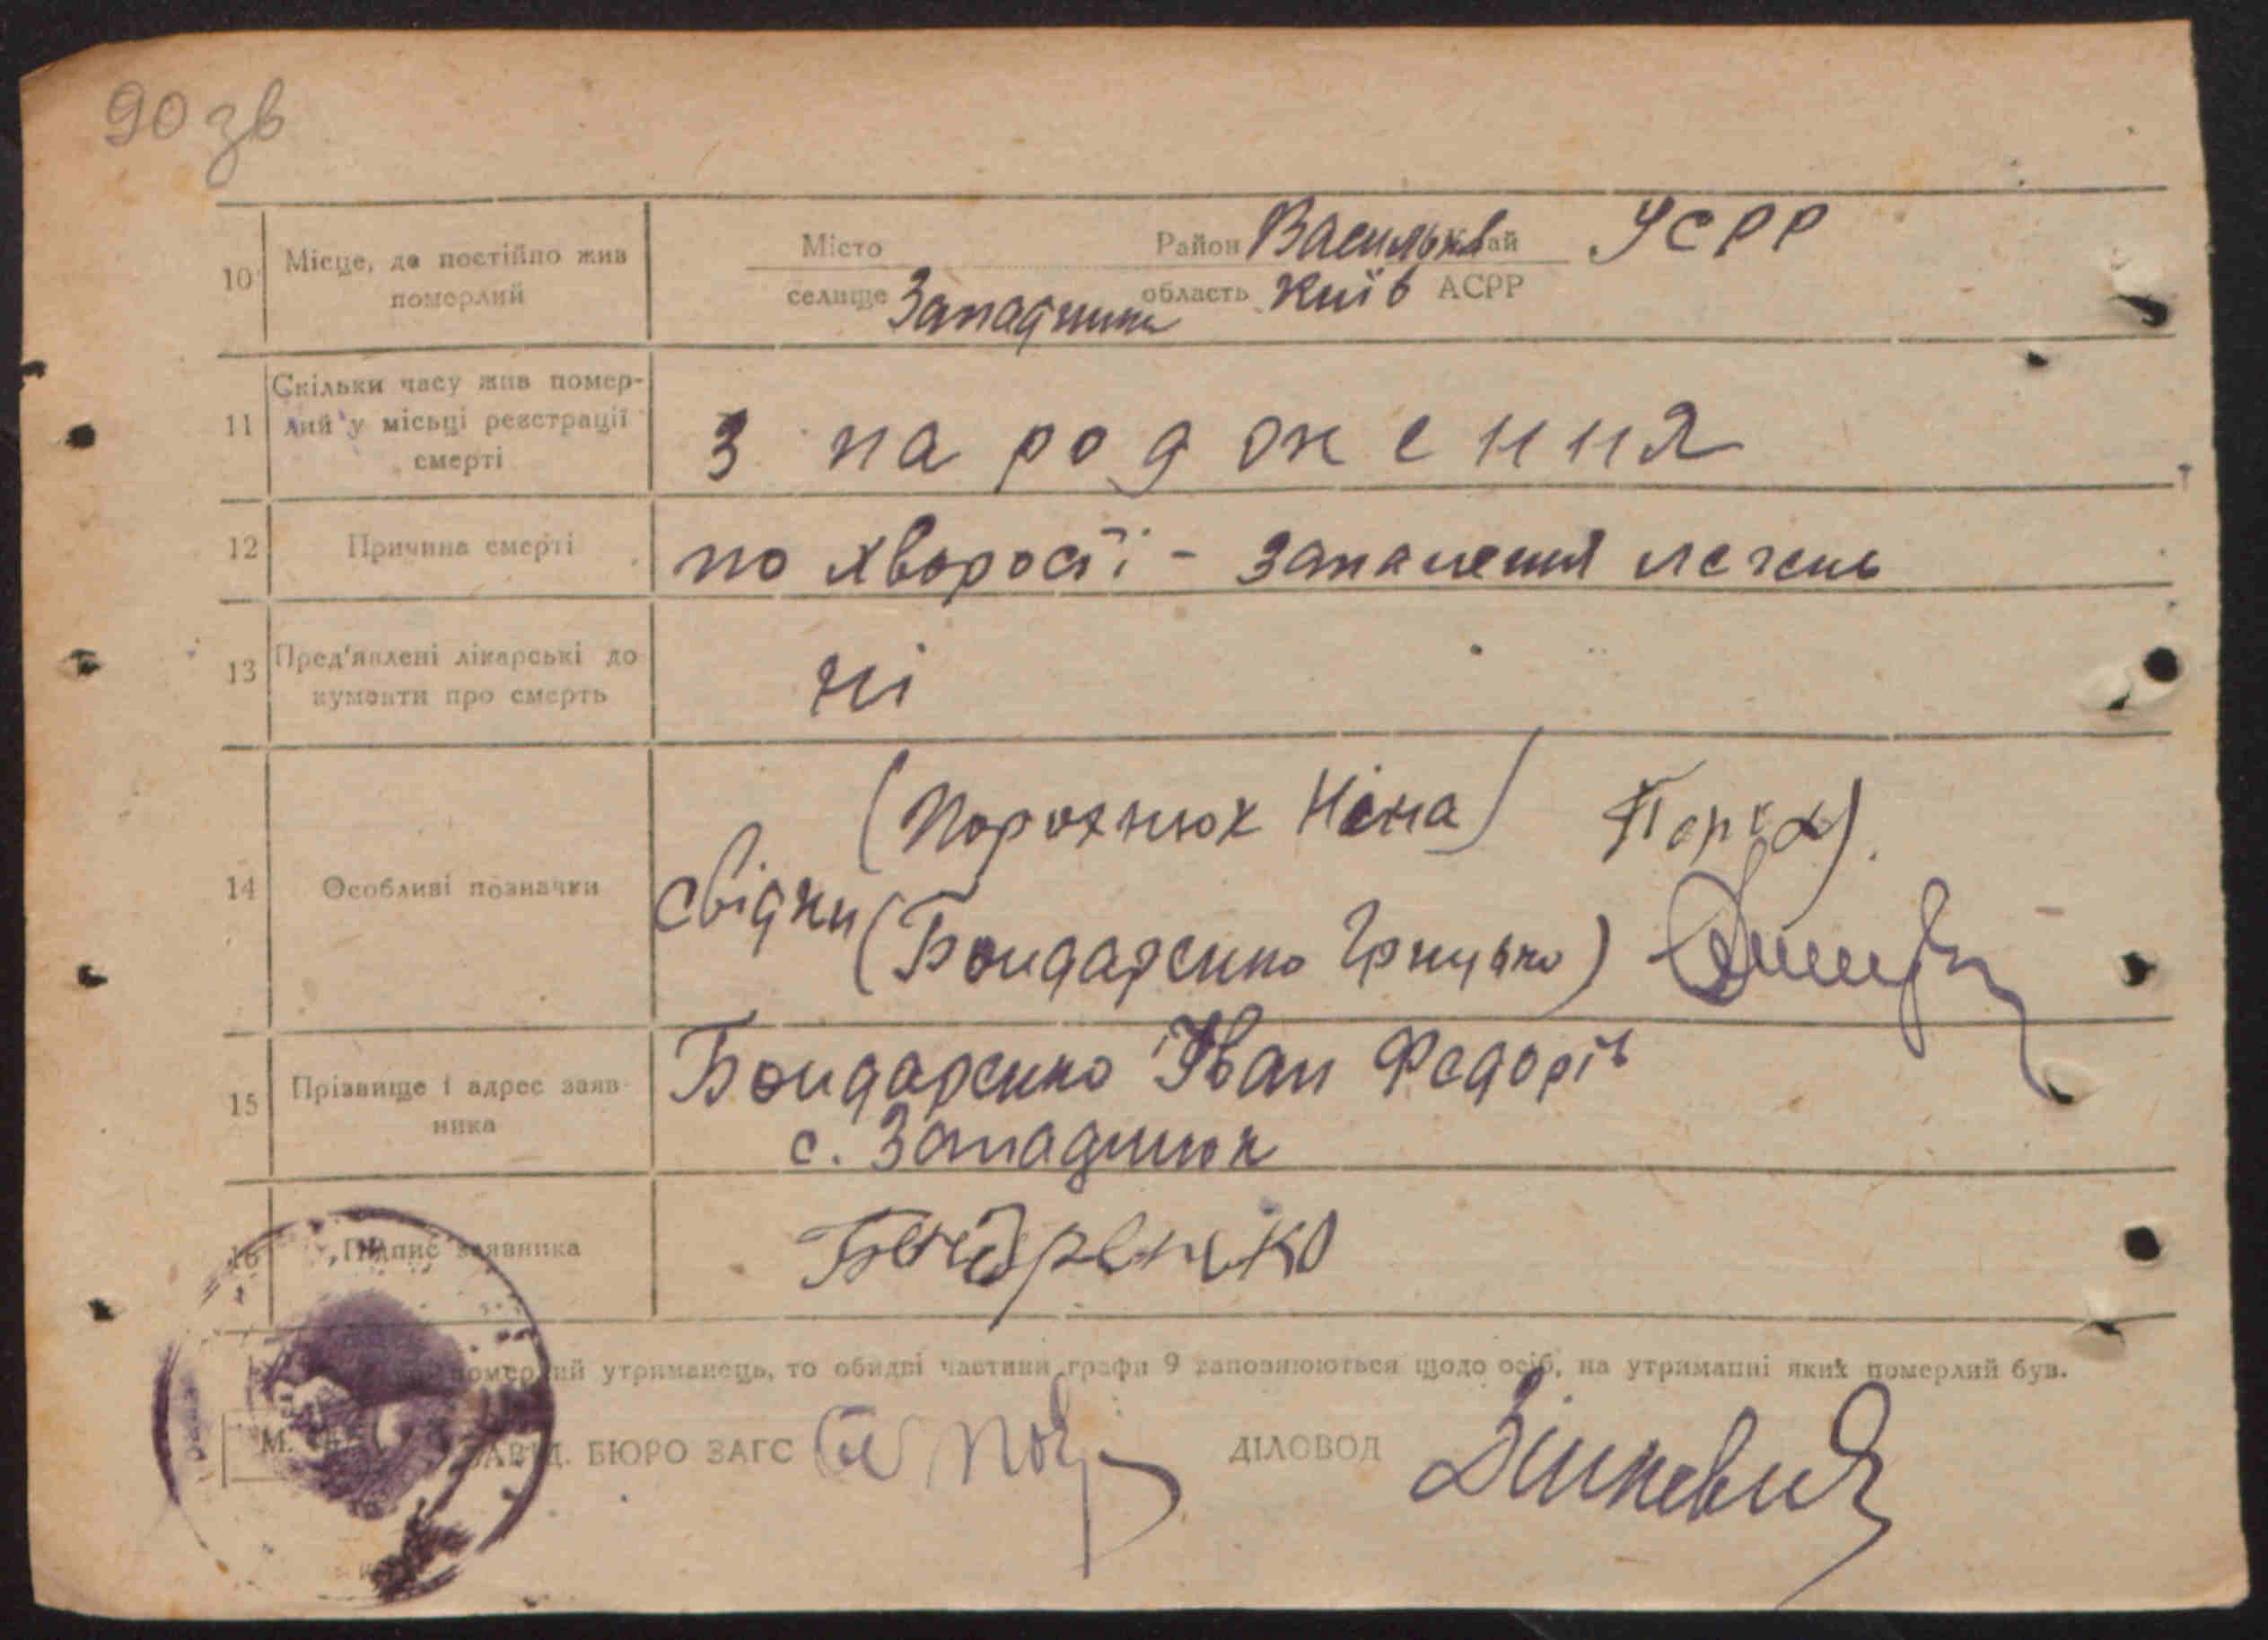 90 зв
10 Місце, де постійно жив померлий
Місто Район Васильків Край УСРР
селище Западинка область Київ АСРР
11 Скільки часу жив помер-
лий у місьці реєстрації
смерті
З народження
12 Причина смерті по хворості - запалення легень
13 Пред'явлені лікарські до
кументи про смерть
ні
(Порохнюк Ніна)
14 Особливі позначки свідки (Бондаренко Грицько)
15 Прізвище і адрес заяв-
ника
Бондаренко Іван Федорів
с. Западинка
16 Підпис заявника Бондренко
померлий утриманець, то обидві частини графи 9 заповнюються щодо осіб, на утриманні яких померлий був.
М. ЗАВІД. БЮРО ЗАГС ДІЛОВОД Зінкевич